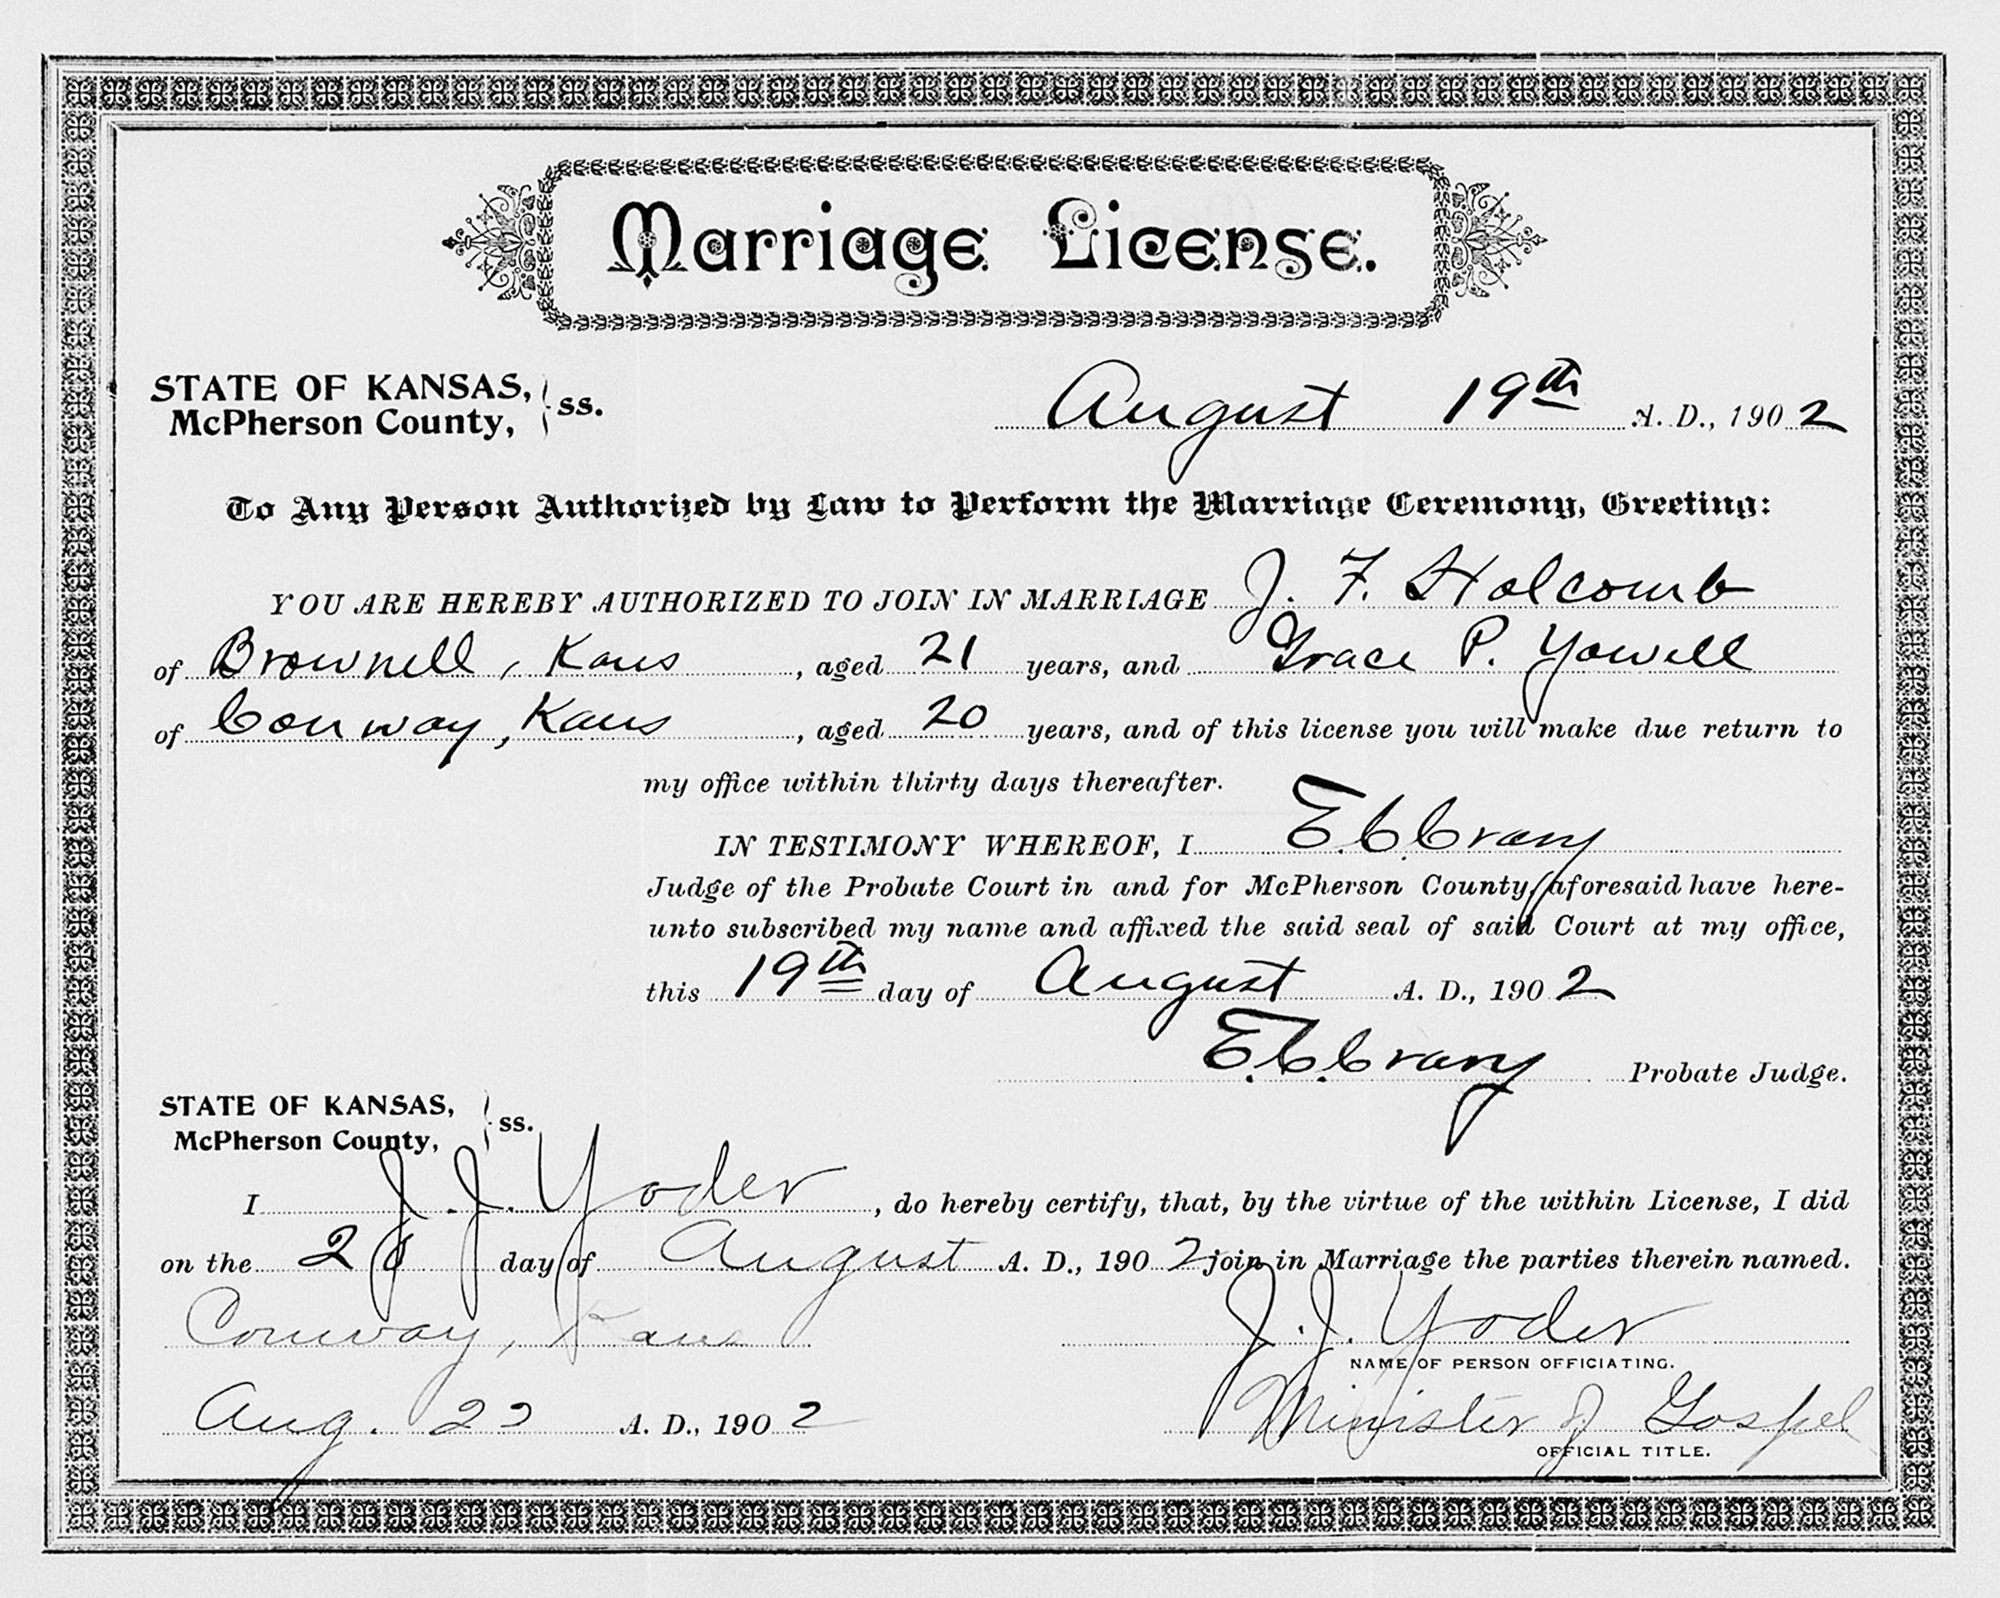 Marriage License.
STATE OF KANSAS,
McPherson County, } ss.
August 19th A. D., 1902
To Any Person Authorized by Law to Perform the Marriage Ceremony, Greeting:
YOU ARE HEREBY AUTHORIZED TO JOIN IN MARRIAGE J. F. Holcomb
of Brownell, Kans, aged 21 years, and Grace P. Yowell
of Conway, Kans, aged 20 years, and of this license you will make due return to
my office within thirty days thereafter.
IN TESTIMONY WHEREOF, I E. C. Crary
Judge of the Probate Court in and for McPherson County, aforesaid have here-
unto subscribed my name and affixed the said seal of said Court at my office,
this 19th day of August A. D., 1902
E. C. Crary Probate Judge.
STATE OF KANSAS,
McPherson County, } ss.
I J. J. Yoder, do hereby certify, that, by the virtue of the within License, I did
on the 20 day of August A. D., 1902 join in Marriage the parties therein named.
Conway, Kans J. J. Yoder
NAME OF PERSON OFFICIATING.
Aug. 22 A. D., 1902 Minister of Gospel
OFFICIAL TITLE.